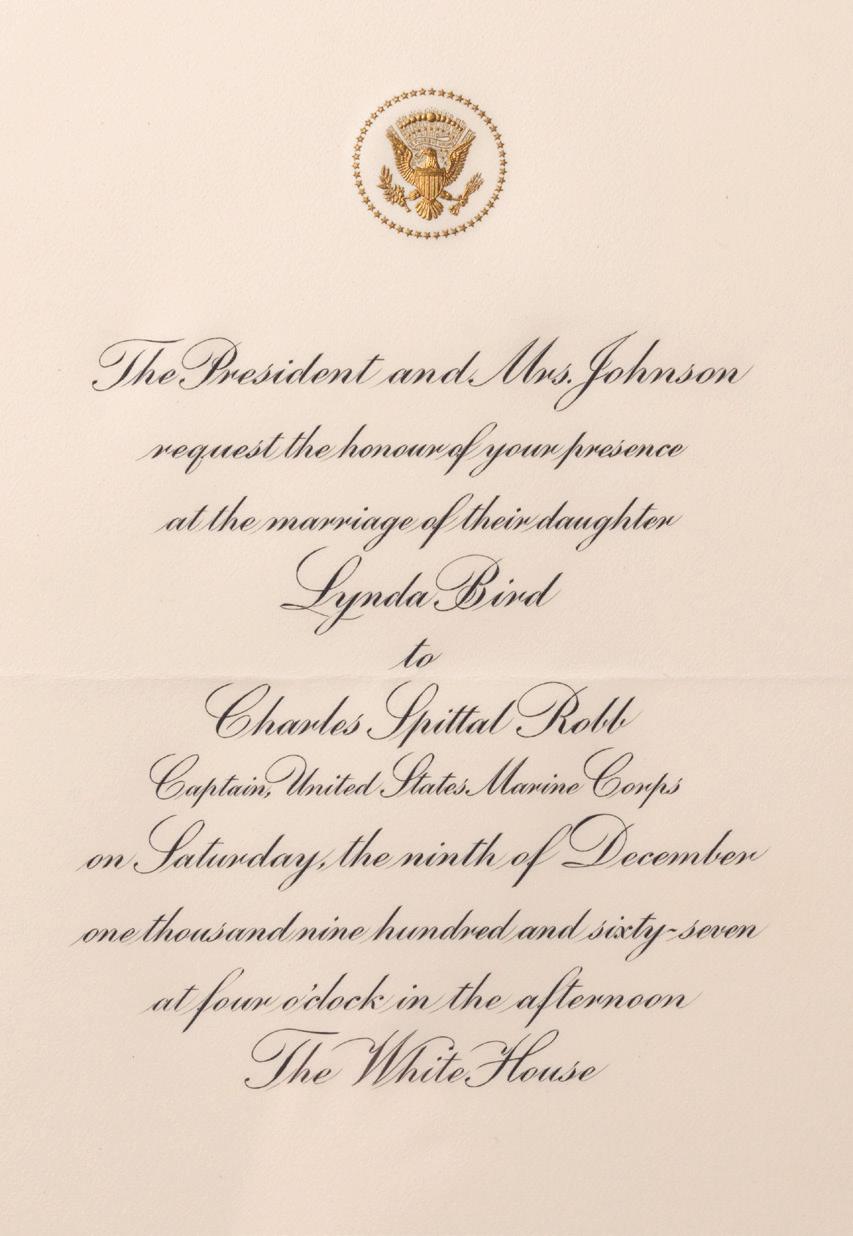 The President and Mrs. Johnson
request the honour of your presence
at the marriage of their daughter
Lynda Bird
to
Charles Spittal Robb
Captain, United States Marine Corps
on Saturday, the ninth of December
one thousand nine hundred and sixty-seven
at four o'clock in the afternoon
The White House